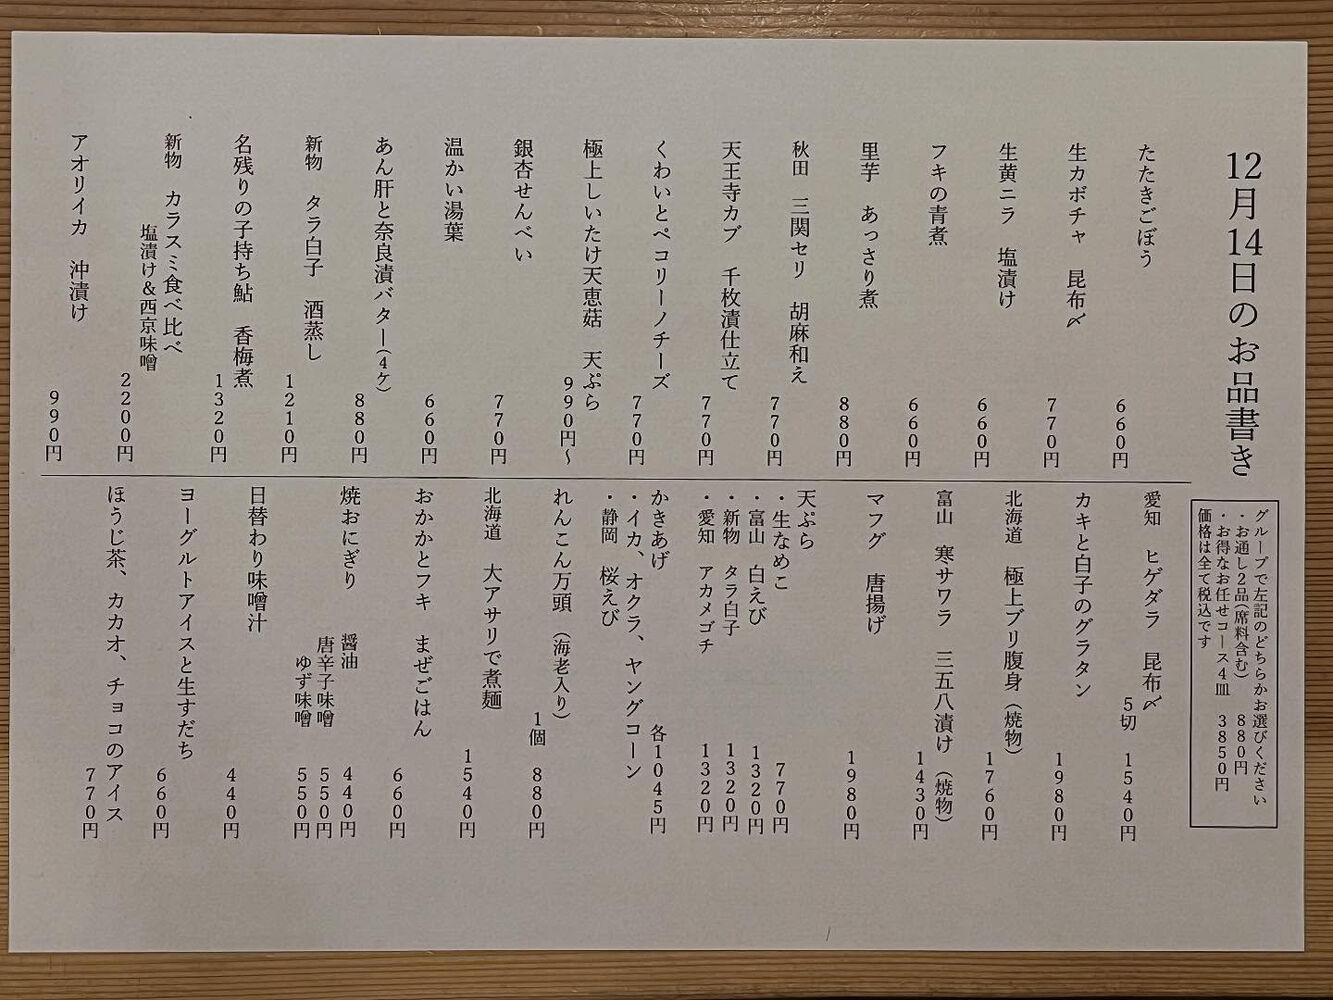 12月14日のお品書き
グループで左記のどちらかお選びください
・お通し2品(席料含む) 880円
・お得なお任せコース4皿 3850円
価格は全て税込です
たたきごぼう 660円
生カボチャ 昆布〆 770円
生黄ニラ 塩漬け 660円
フキの青煮 660円
里芋 あっさり煮 880円
秋田 三関セリ 胡麻和え 770円
天王寺カブ 千枚漬仕立て 770円
くわいとペコリーノチーズ 770円
極上しいたけ天恵菇 天ぷら 990円〜
銀杏せんべい 770円
温かい湯葉 660円
あん肝と奈良漬バター(4ケ) 880円
新物 タラ白子 酒蒸し 1210円
名残りの子持ち鮎 香梅煮 1320円
新物 カラスミ食べ比べ
塩漬け&西京味噌 2200円
アオリイカ 沖漬け 990円
愛知 ヒゲダラ 昆布〆
5切 1540円
カキと白子のグラタン 1980円
北海道 極上ブリ腹身(焼物) 1760円
富山 寒サワラ 三五八漬け(焼物) 1430円
マフグ 唐揚げ 1980円
天ぷら
・生なめこ 770円
・富山 白えび 1320円
・新物 タラ白子 1320円
・愛知 アカメゴチ 1320円
かきあげ 各1045円
・イカ、オクラ、ヤングコーン
・静岡 桜えび
れんこん万頭(海老入り)
1個 880円
北海道 大アサリで煮麺 1540円
おかかとフキ まぜごはん 660円
焼おにぎり 醤油 440円
唐辛子味噌 550円
ゆず味噌 550円
日替わり味噌汁 440円
ヨーグルトアイスと生すだち 660円
ほうじ茶、カカオ、チョコのアイス 770円